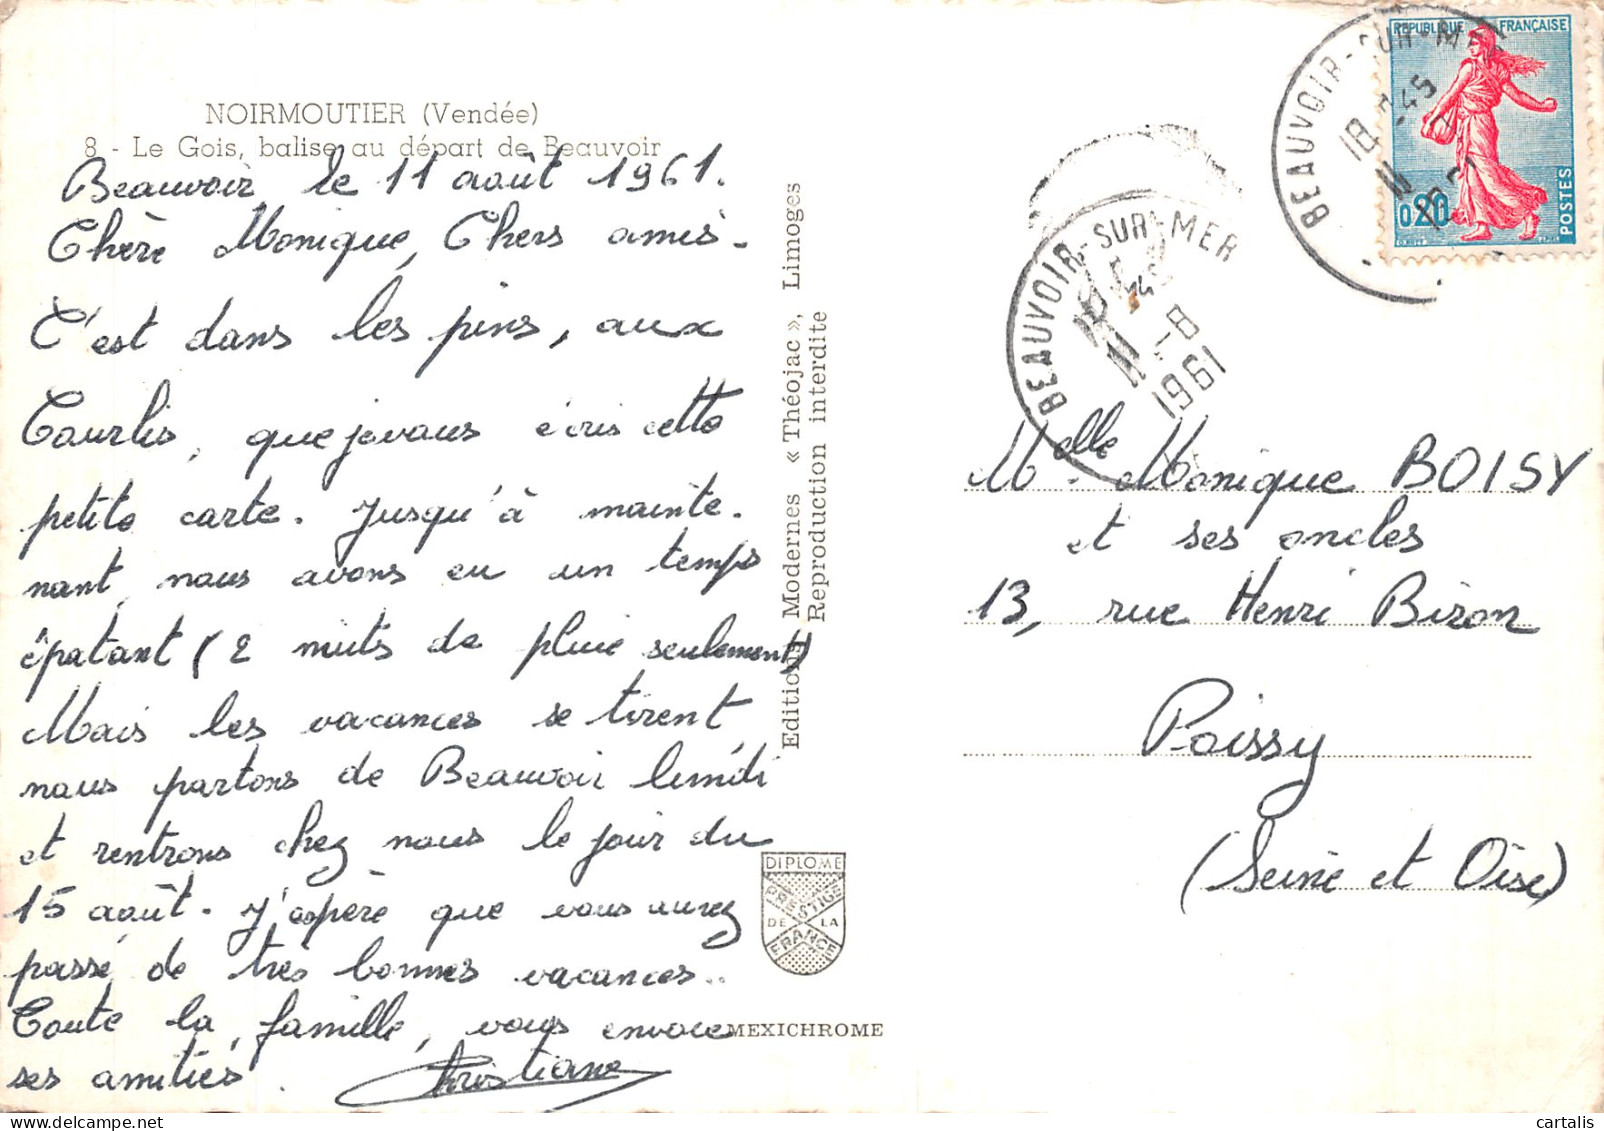 NOIRMOUTIER (Vendée)
8 - Le Gois, balise au départ de Beauvoir
Beauvoir, le 11 août 1961.
Chère Monique, Chers amis -
C'est dans les pins, aux
Courlis, que je vous écris cette
petite carte. Jusqu'à mainte-
nant, nous avons eu un temps
épatant (2 nuits de pluie seulement)
Mais les vacances se tirent,
nous partons de Beauvoir lundi
et rentrons chez nous le jour du
15 août. J'espère que vous aurez
passé de très bonnes vacances..
Toute la famille, vous envoie
ses amitiés.
Christiane
Editions Modernes « Théojac », Limoges
Reproduction interdite
DIPLOME
PRESTIGE
DE LA
FRANCE
MEXICHROME
REPUBLIQUE FRANÇAISE
0,20
POSTES
BEAUVOIR-SUR-MER
18 45
11
BEAUVOIR-SUR-MER
11 - 8
1961
Melle Monique BOISY
et ses oncles
13, rue Henri Biron
Poissy
(Seine et Oise)
cartalis
www.delcampe.net